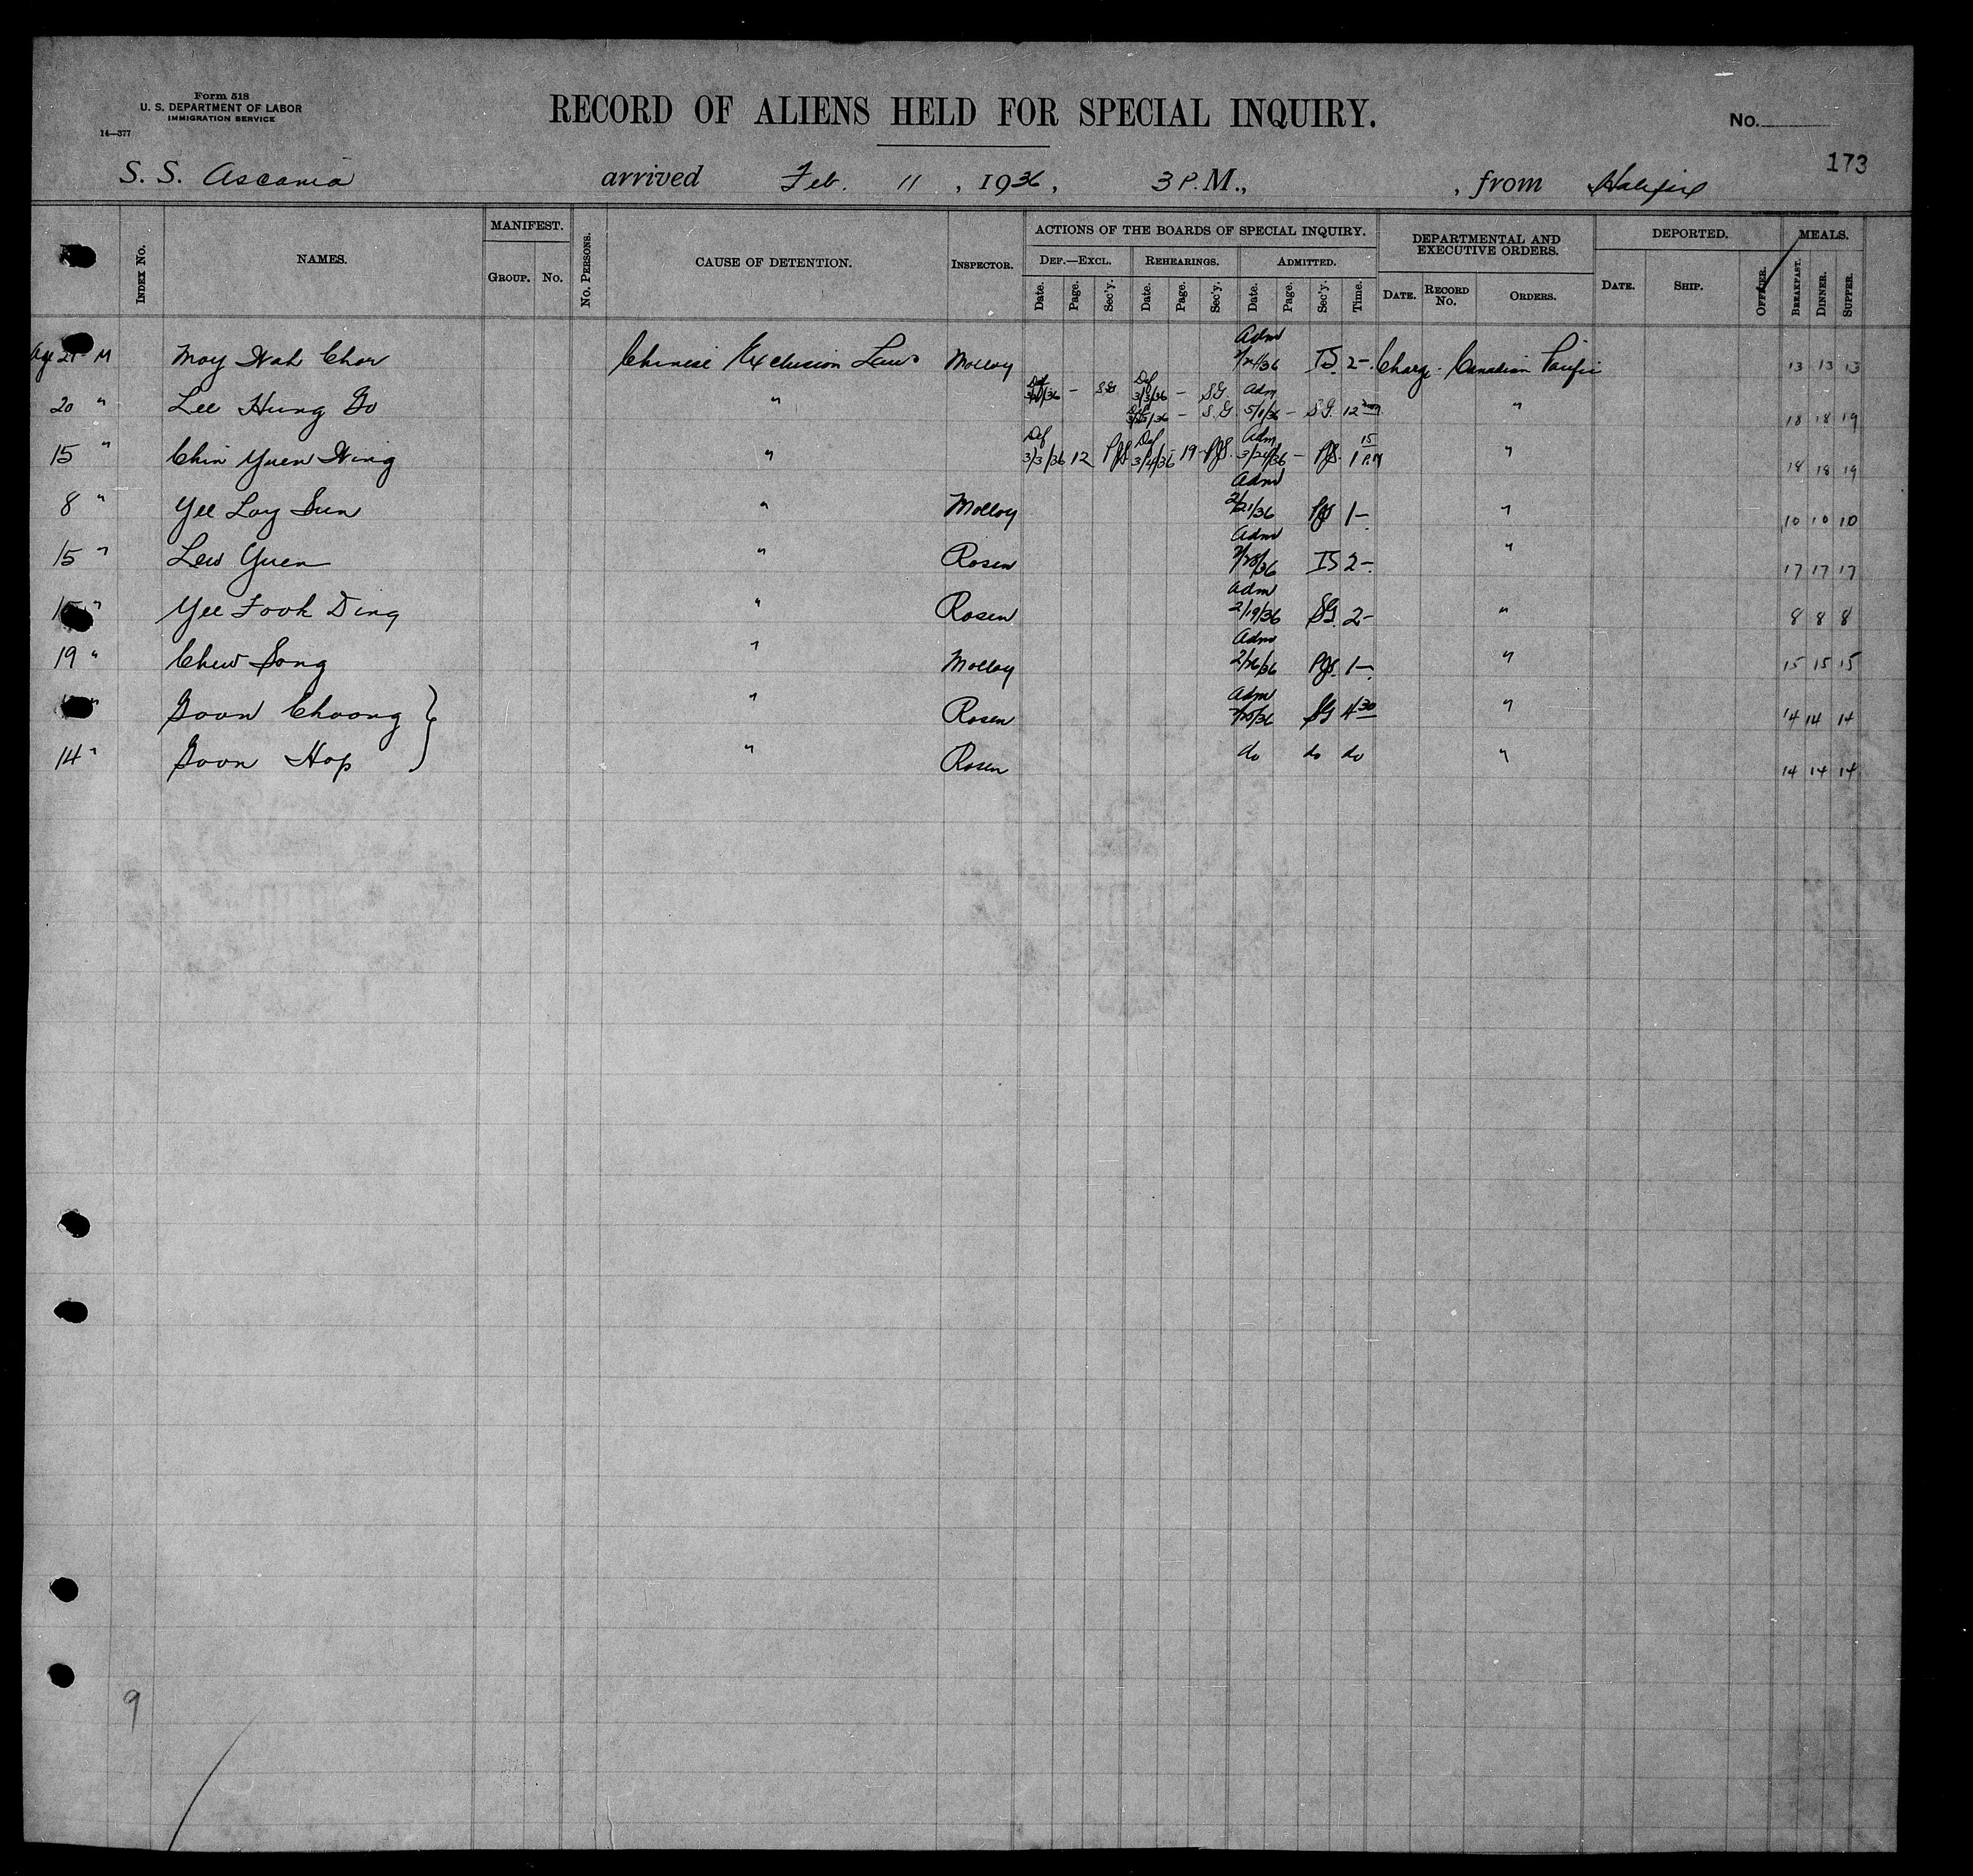 Form 518
U. S. DEPARTMENT OF LABOR
IMMIGRATION SERVICE
14—377
RECORD OF ALIENS HELD FOR SPECIAL INQUIRY.
No.
173
S. S. Ascania arrived Feb. 11, 1936, 3 P.M., , from Halifax
INDEX No. NAMES. MANIFEST. GROUP. No. No. PERSONS. CAUSE OF DETENTION. INSPECTOR. ACTIONS OF THE BOARDS OF SPECIAL INQUIRY. DEF.—EXCL. Date. Page. Sec'y. REHEARINGS. Date. Page. Sec'y. ADMITTED. Date. Page. Sec'y. Time. DEPARTMENTAL AND EXECUTIVE ORDERS. DATE. RECORD No. ORDERS. DEPORTED. DATE. SHIP. OFFICER. MEALS. BREAKFAST. DINNER. SUPPER.
Age 21 M Moy Wah Chor Chinese Exclusion Laws Molloy Adm 2/24/36 IS 2- Charge Canadian Pacific 13 13 13
20 " Lee Hung Go " Def - SG Def 3/3/36 - SG. Adm
- S.G 5/1/36 - SG. 12 " 18 18 19
15 " Chin Yuen Wing " Def 3/3/36 12 PJS Def 3/4/36 19 PJS. Adm 3/24/36 - PJS. 1 15 P.M " 18 18 19
8 " Yee Loy Sun " Molloy Adm 2/21/36 PJS 1- " 10 10 10
15 " Lew Yuen " Rosen Adm 2/28/36 IS 2- " 17 17 17
15 " Yee Fook Ding " Rosen Adm 2/19/36 SG. 2- " 8 8 8
19 " Chew Song " Molloy Adm 2/26/36 PJS. 1- " 15 15 15
" Goon Choong } " Rosen Adm 2/25/36 SG 4 30 " 14 14 14
14 " Goon Hop " Rosen do do do " 14 14 14
9